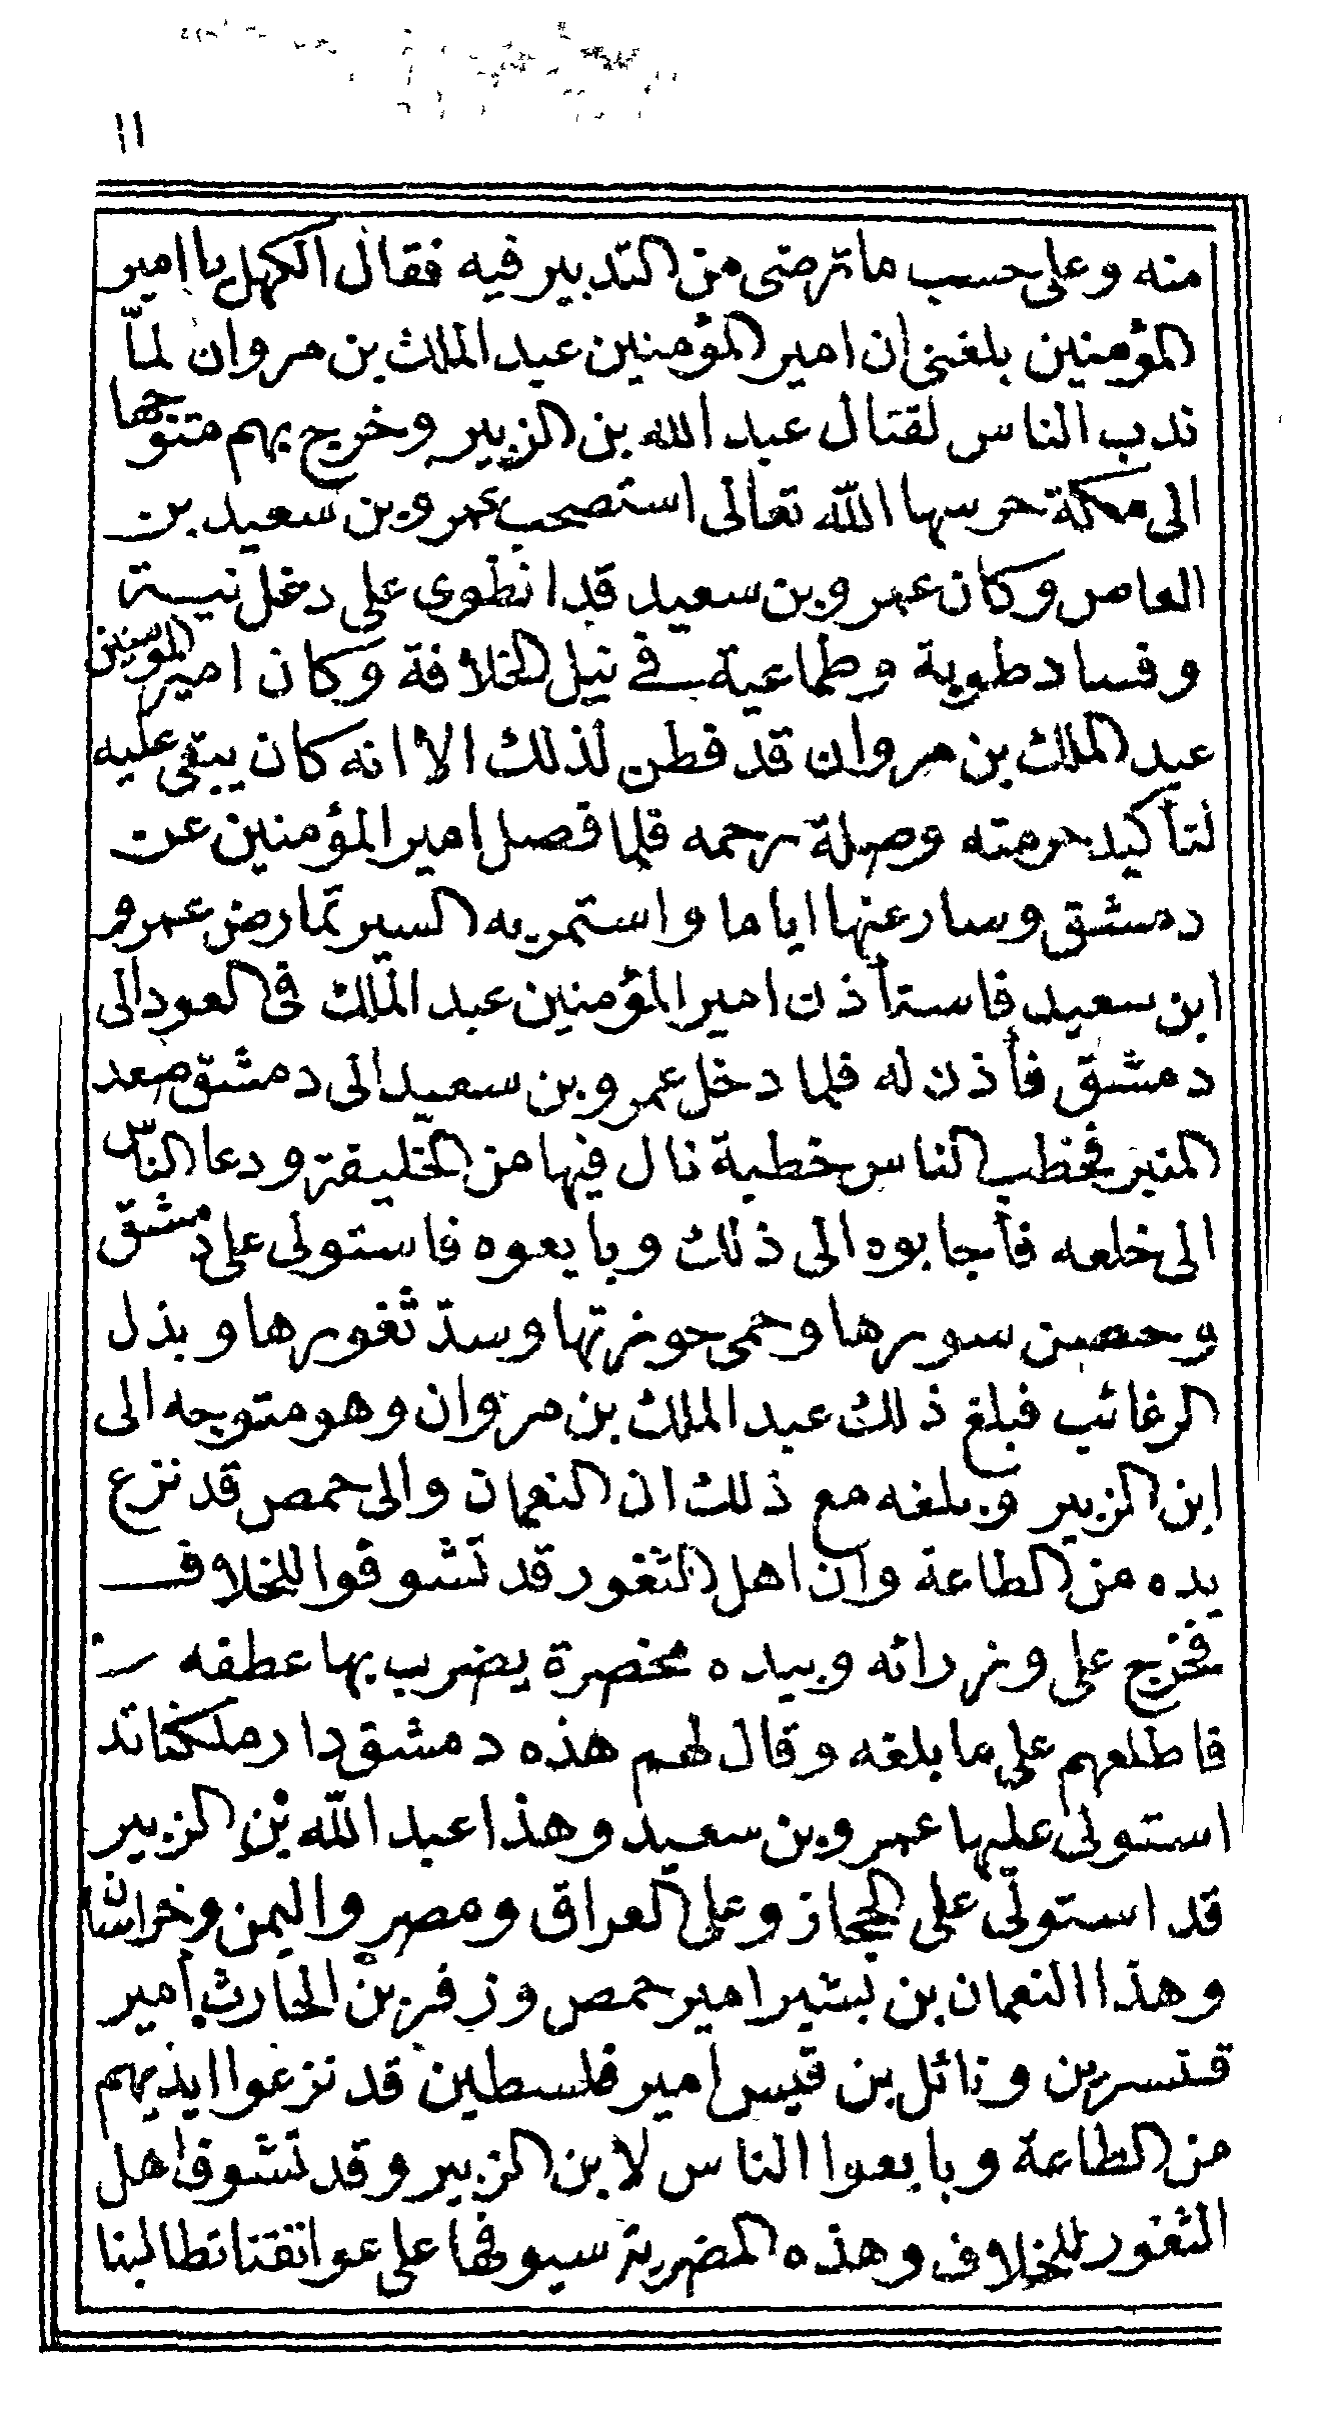 ١١
منه وعلى حسب ما ترضى من التدبير فيه فقال الكهل يا امير
المؤمنين بلغنى ان امير المؤمنين عبد الملك بن مروان لمّا
ندب الناس لقتال عبد الله بن الزبير وخرج بهم متوجها
الى مكة حرسها الله تعالى استصحب عمرو بن سعيد بن
العاص وكان عمرو بن سعيد قد انطوى على دغل نية
وفساد طوية وطماعية فى نيل الخلافة وكان امير المؤمنين
عبد الملك بن مروان قد فطن لذلك الا انه كان يبقى عليه
لتأكيد حرمته وصلة رحمه فلما فصل امير المؤمنين عن
دمشق وسار عنها اياما واستمر به السير تمارض عمرو
ابن سعيد فاستأذن امير المؤمنين عبد الملك فى العود الى
دمشق فأذن له فلما دخل عمرو بن سعيد الى دمشق صعد
المنبر فخطب الناس خطبة نال فيها من الخليفة ودعا الناس
الى خلعه فأجابوه الى ذلك وبايعوه فاستولى على دمشق
وحصن سورها وحمى حوزتها وسدّ ثغورها وبذل
الرغائب فبلغ ذلك عبد الملك بن مروان وهو متوجه الى
ابن الزبير وبلغه مع ذلك ان النعمان والى حمص قد نزع
يده من الطاعة وان اهل الثغور قد تشوفوا للخلاف
فخرج على وزرائه وبيده مخصرة يضرب بها عطفه
فاطلعهم على ما بلغه وقال لهم هذه دمشق دار ملكنا قد
استولى عليها عمرو بن سعيد وهذا عبد الله بن الزبير
قد استولى على الحجاز وعلى العراق ومصر واليمن وخراسان
وهذا النعمان بن بشير امير حمص وزفر بن الحارث امير
قنسرين ونائل بن قيس امير فلسطين قد نزعوا ايديهم
من الطاعة وبايعوا الناس لابن الزبير وقد تشوف اهل
الثغور للخلاف وهذه المضرية سيوفها على عواتقنا تطالبنا